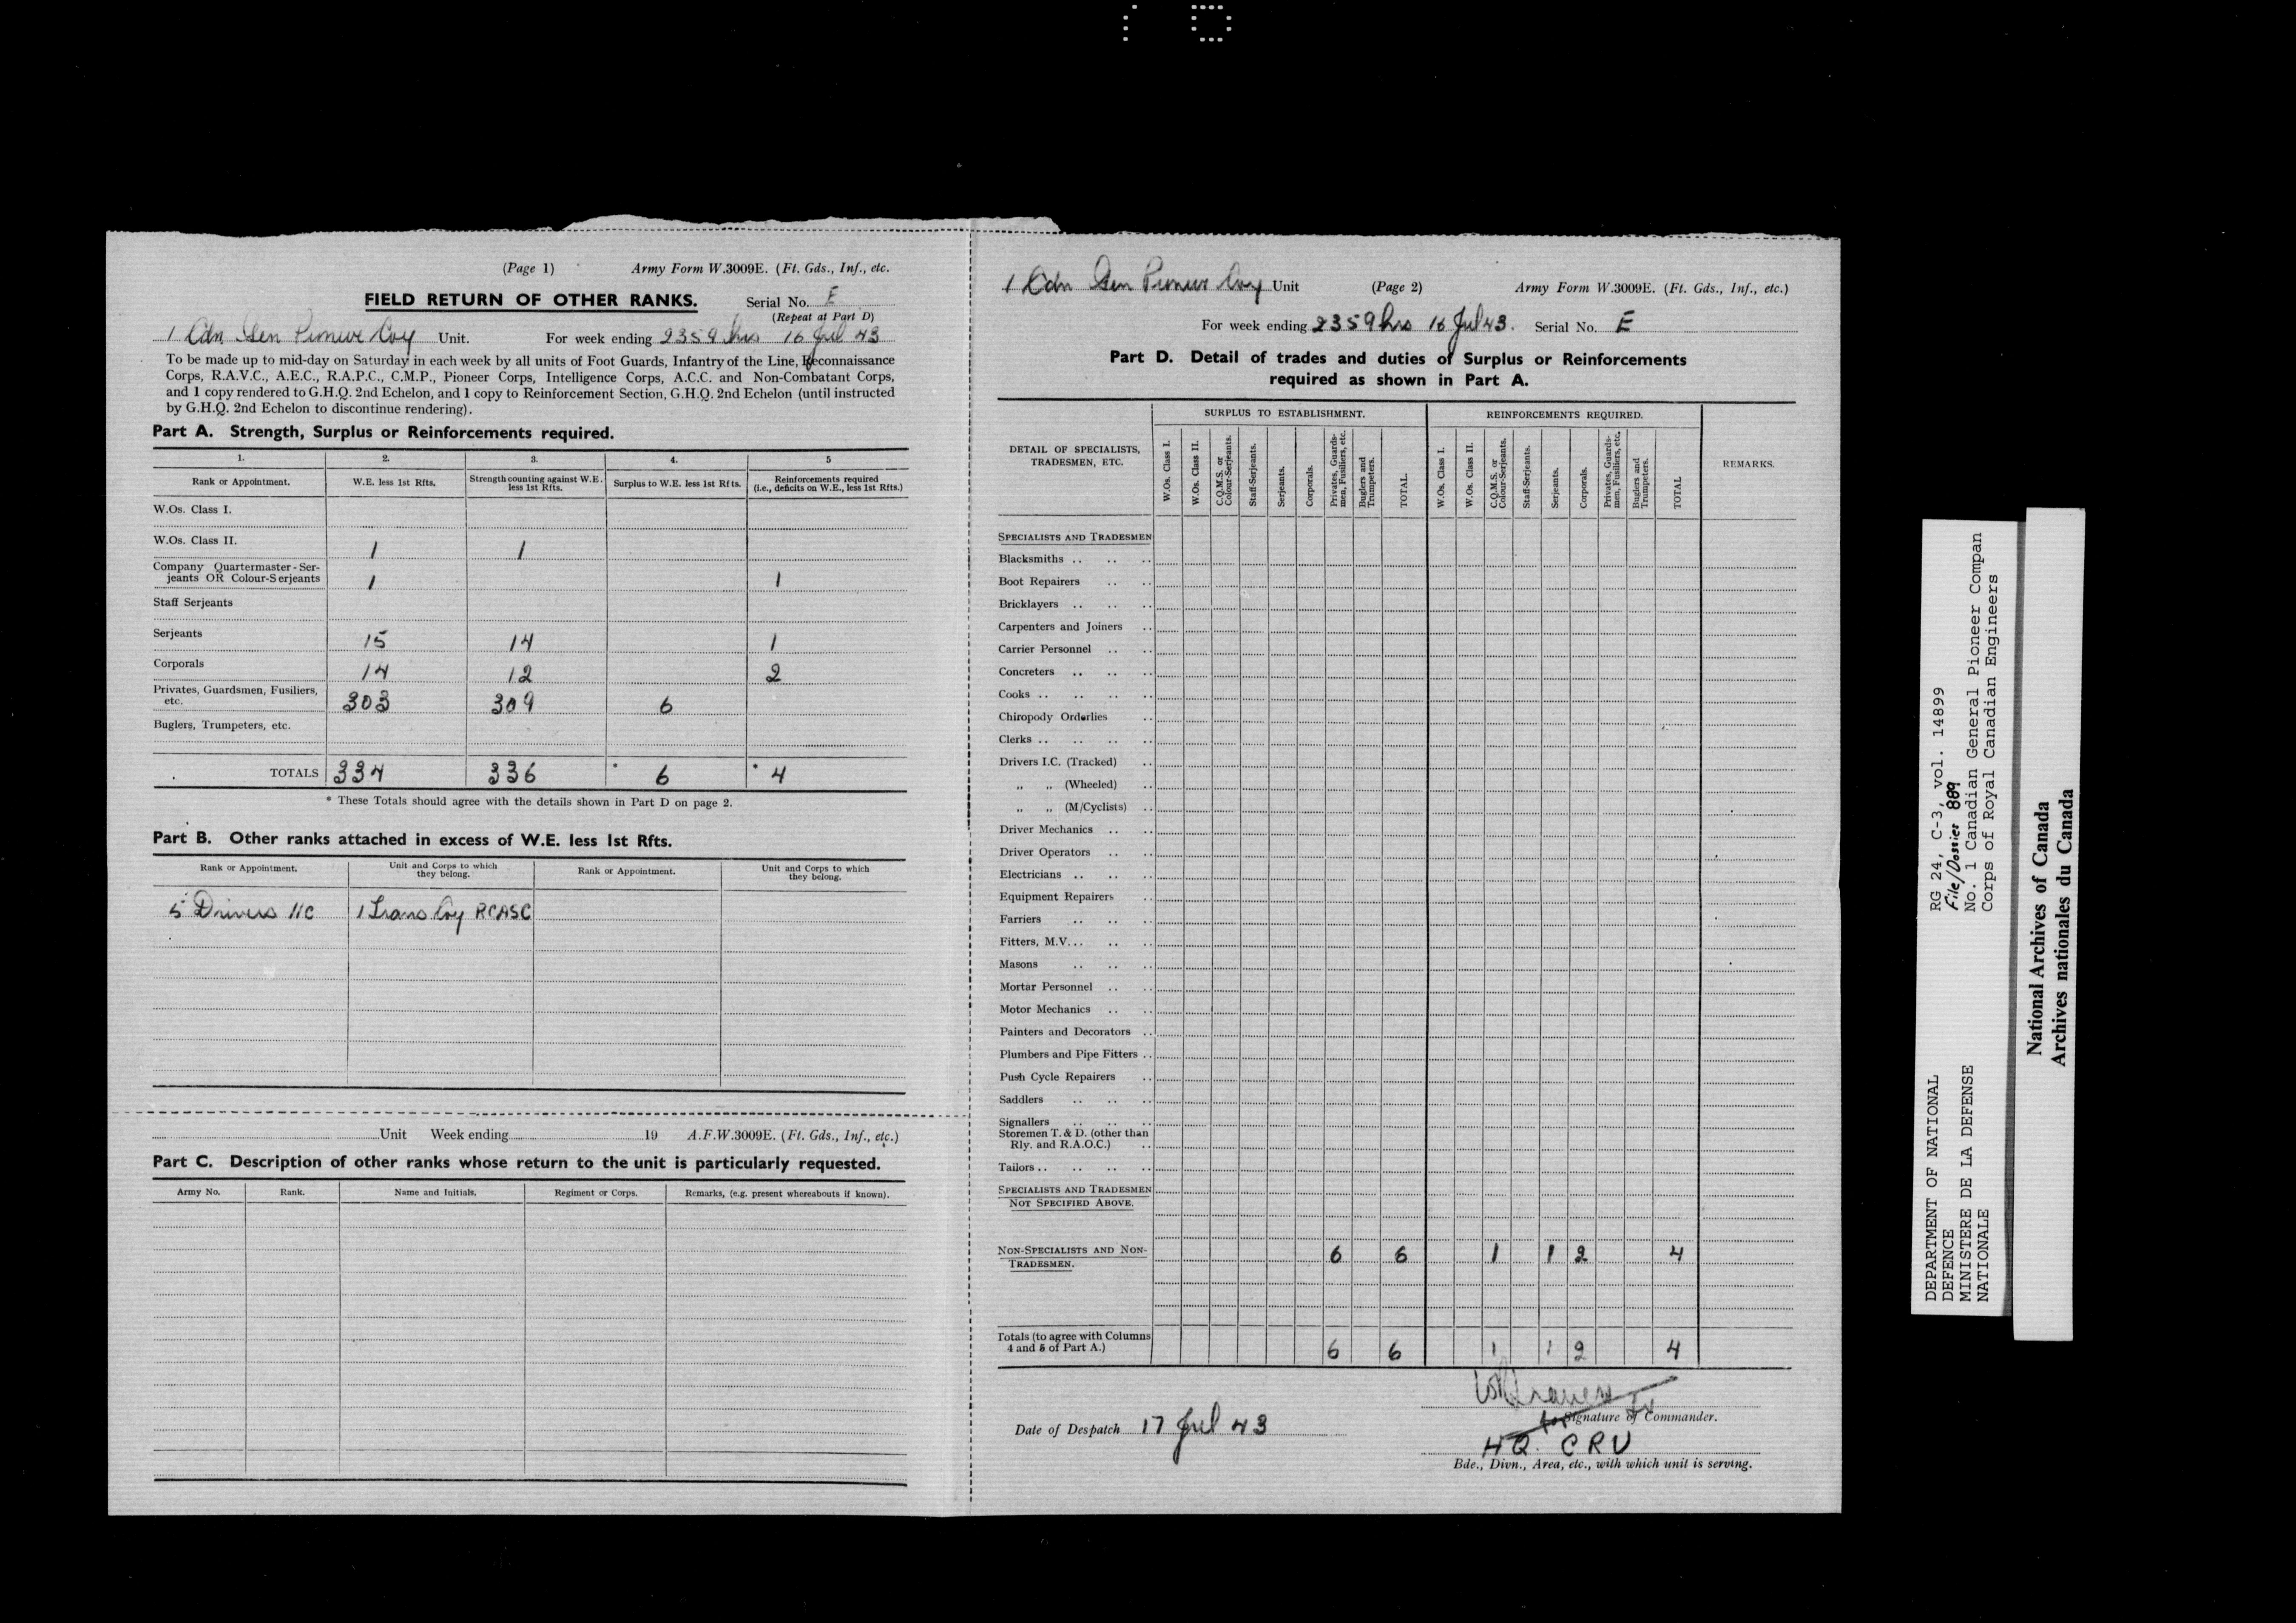 (Page 1) Army Form W.3009E. (Ft. Gds., Inf., etc.
FIELD RETURN OF OTHER RANKS. Serial No. E
(Repeat at Part D)
1 Cdn Gen Pioneer Coy Unit. For week ending 2359 hrs 16 Jul 43
To be made up to mid-day on Saturday in each week by all units of Foot Guards, Infantry of the Line, Reconnaissance
Corps, R.A.V.C., A.E.C., R.A.P.C., C.M.P., Pioneer Corps, Intelligence Corps, A.C.C. and Non-Combatant Corps,
and 1 copy rendered to G.H.Q. 2nd Echelon, and 1 copy to Reinforcement Section, G.H.Q. 2nd Echelon (until instructed
by G.H.Q. 2nd Echelon to discontinue rendering).
Part A. Strength, Surplus or Reinforcements required.
1. 2. 3. 4. 5
Rank or Appointment. W.E. less 1st Rfts. Strength counting against W.E. less 1st Rfts. Surplus to W.E. less 1st Rfts. Reinforcements required (i.e., deficits on W.E., less 1st Rfts.)
W.Os. Class I.
W.Os. Class II. 1 1
Company Quartermaster-Ser-
jeants OR Colour-Serjeants 1 1
Staff Serjeants
Serjeants 15 14 1
Corporals 14 12 2
Privates, Guardsmen, Fusiliers,
etc. 303 309 6
Buglers, Trumpeters, etc.
TOTALS 334 336 * 6 * 4
* These Totals should agree with the details shown in Part D on page 2.
Part B. Other ranks attached in excess of W.E. less 1st Rfts.
Rank or Appointment. Unit and Corps to which they belong. Rank or Appointment. Unit and Corps to which they belong.
5 Drivers I/C 1 Trans Coy RCASC
Unit Week ending 19 A.F.W.3009E. (Ft. Gds., Inf., etc.)
Part C. Description of other ranks whose return to the unit is particularly requested.
Army No. Rank. Name and Initials. Regiment or Corps. Remarks, (e.g. present whereabouts if known).
1 Cdn Gen Pioneer Coy Unit (Page 2) Army Form W.3009E. (Ft. Gds., Inf., etc.)
For week ending 2359 hrs 16 Jul 43. Serial No. E
Part D. Detail of trades and duties of Surplus or Reinforcements
required as shown in Part A.
DETAIL OF SPECIALISTS, TRADESMEN, ETC. SURPLUS TO ESTABLISHMENT. REINFORCEMENTS REQUIRED. REMARKS.
W.Os. Class I. W.Os. Class II. C.Q.M.S. or Colour-Serjeants. Staff-Serjeants. Serjeants. Corporals. Privates, Guards-men, Fusiliers, etc. Buglers and Trumpeters. TOTAL. W.Os. Class I. W.Os. Class II. C.Q.M.S. or Colour-Serjeants. Staff-Serjeants. Serjeants. Corporals. Privates, Guards-men, Fusiliers, etc. Buglers and Trumpeters. TOTAL
SPECIALISTS AND TRADESMEN
Blacksmiths .. .. ..
Boot Repairers .. ..
Bricklayers .. .. ..
Carpenters and Joiners ..
Carrier Personnel .. ..
Concreters .. .. ..
Cooks .. .. .. ..
Chiropody Orderlies ..
Clerks .. .. .. ..
Drivers I.C. (Tracked) ..
,, ,, (Wheeled) ..
,, ,, (M/Cyclists) ..
Driver Mechanics .. ..
Driver Operators .. ..
Electricians .. .. ..
Equipment Repairers ..
Farriers .. .. ..
Fitters, M.V... .. ..
Masons .. .. ..
Mortar Personnel .. ..
Motor Mechanics .. ..
Painters and Decorators ..
Plumbers and Pipe Fitters ..
Push Cycle Repairers ..
Saddlers .. .. ..
Signallers .. .. ..
Storemen T. & D. (other than
Rly. and R.A.O.C.) ..
Tailors .. .. .. ..
SPECIALISTS AND TRADESMEN
NOT SPECIFIED ABOVE.
NON-SPECIALISTS AND NON- 6 6 1 1 2 4
TRADESMEN.
Totals (to agree with Columns
4 and 5 of Part A.) 6 6 1 1 2 4
Signature of Commander.
Date of Despatch 17 Jul 43
HQ CRU
Bde., Divn., Area, etc., with which unit is serving.
DEPARTMENT OF NATIONAL RG 24, C-3, vol. 14899
DEFENCE File/Dossier 889
MINISTERE DE LA DEFENSE No. 1 Canadian General Pioneer Compan
NATIONALE Corps of Royal Canadian Engineers
National Archives of Canada
Archives nationales du Canada